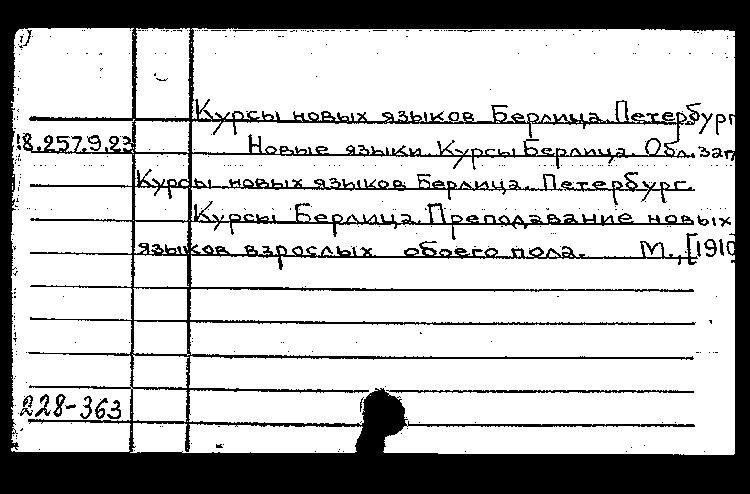 Курсы новых языков Берлица. Петербург
18.257.9.23 Новые языки. Курсы Берлица. Обл. заг
Курсы новых языков Берлица. Петербург.
Курсы Берлица. Преподавание новых
языков взрослых обоего пола. М., [1910
228-363